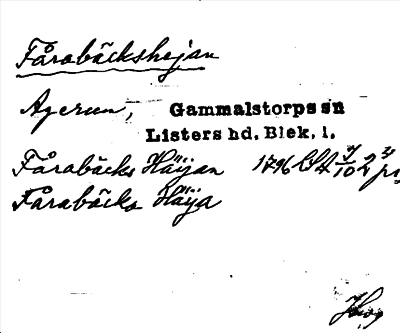 Fårabäckshejan
Agerum, Gammalstorps sn
Listers hd. Blek. l.
Fårabäcks Häijan 1796
Fårabäcks Häija